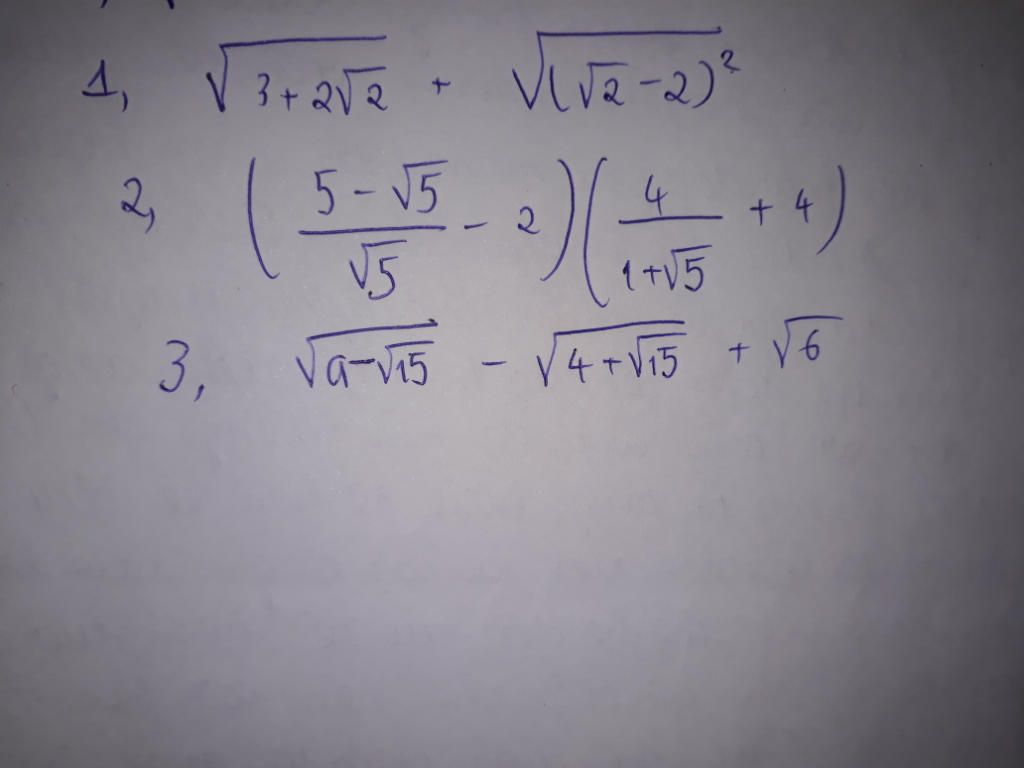 1, √(3+2√2) + √((√2-2)²)
2, ((5-√5)/√5 - 2)(4/(1+√5) + 4)
3, √(a-√15) - √(4+√15) + √6